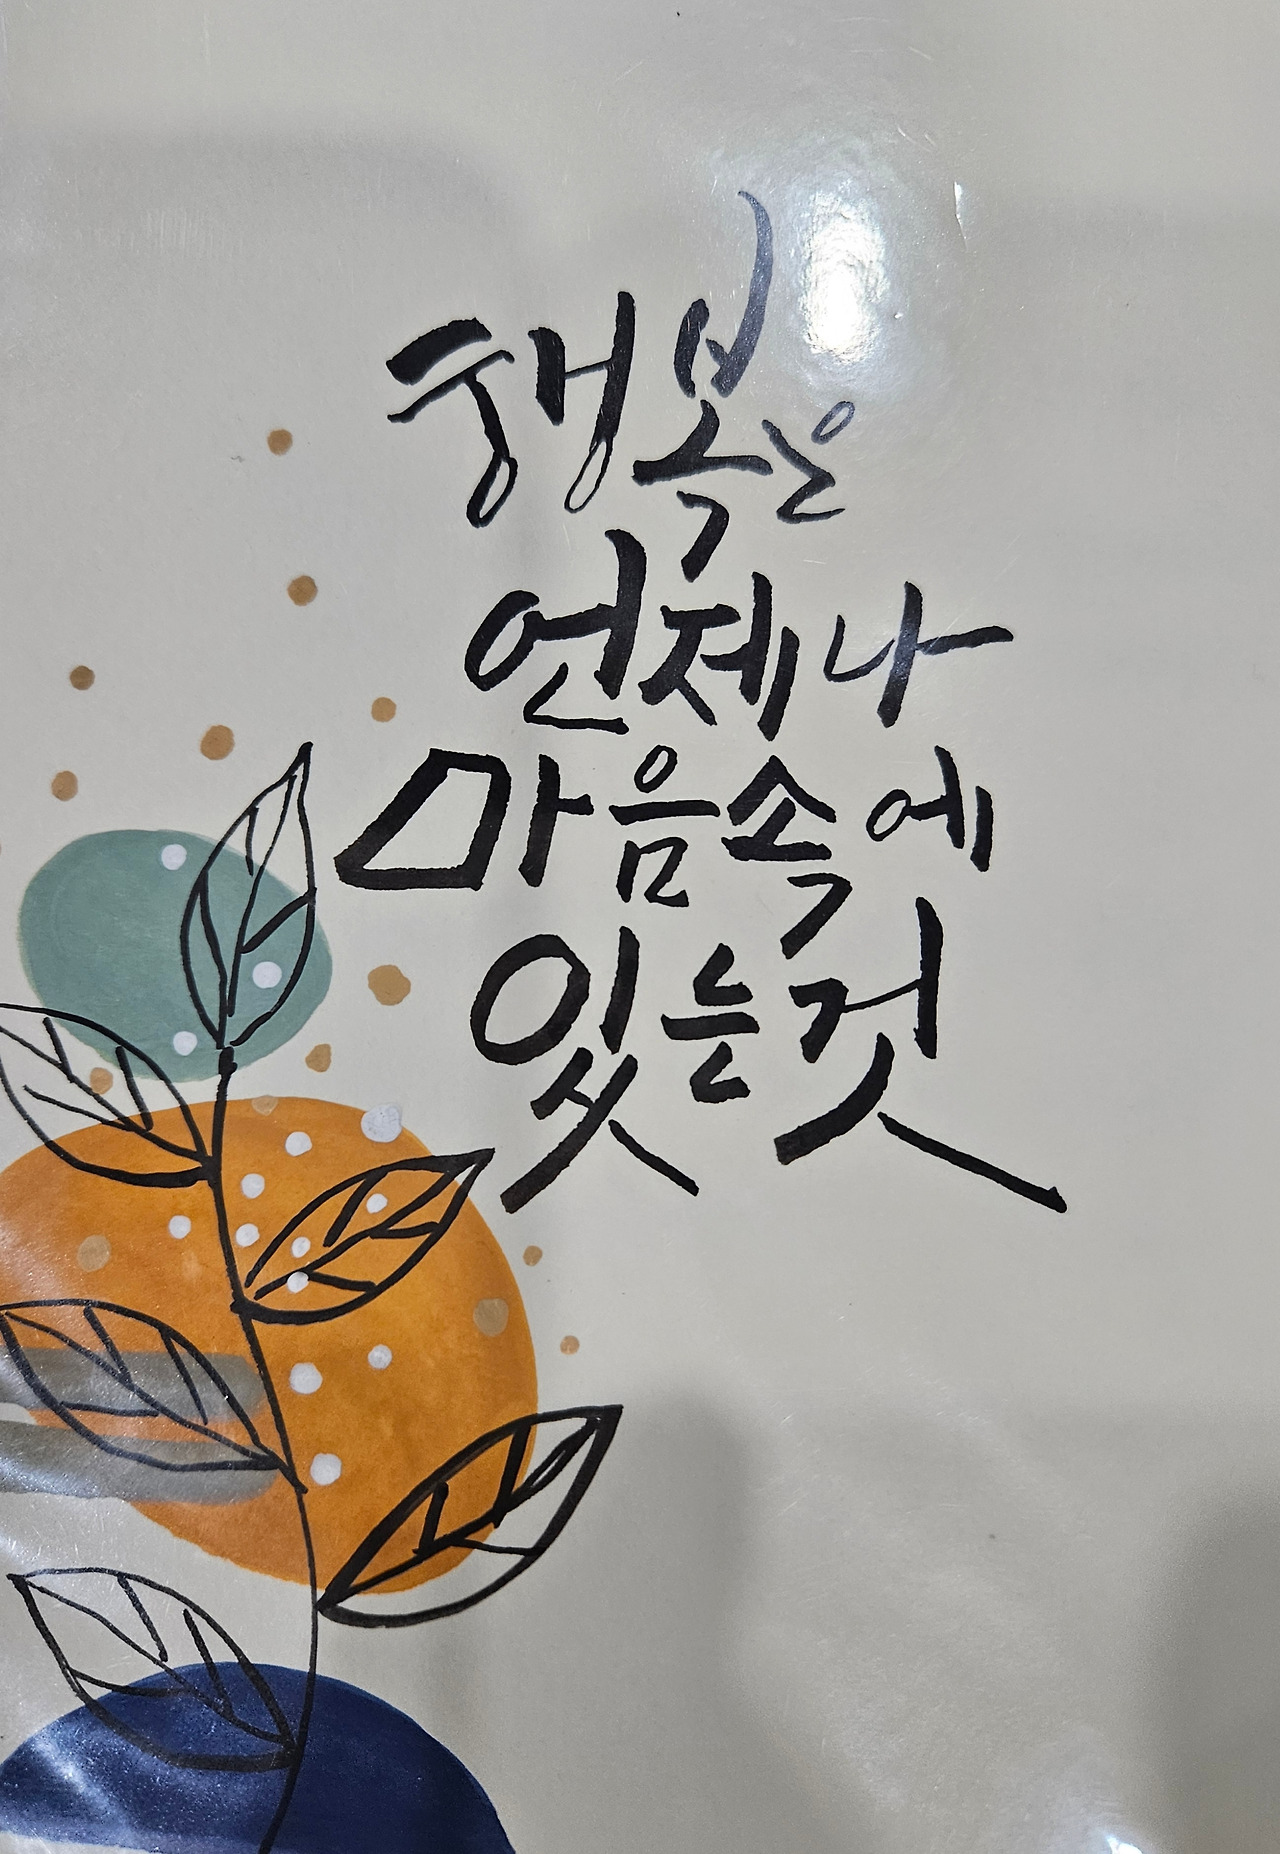 행복은
언제나
마음속에
있는것